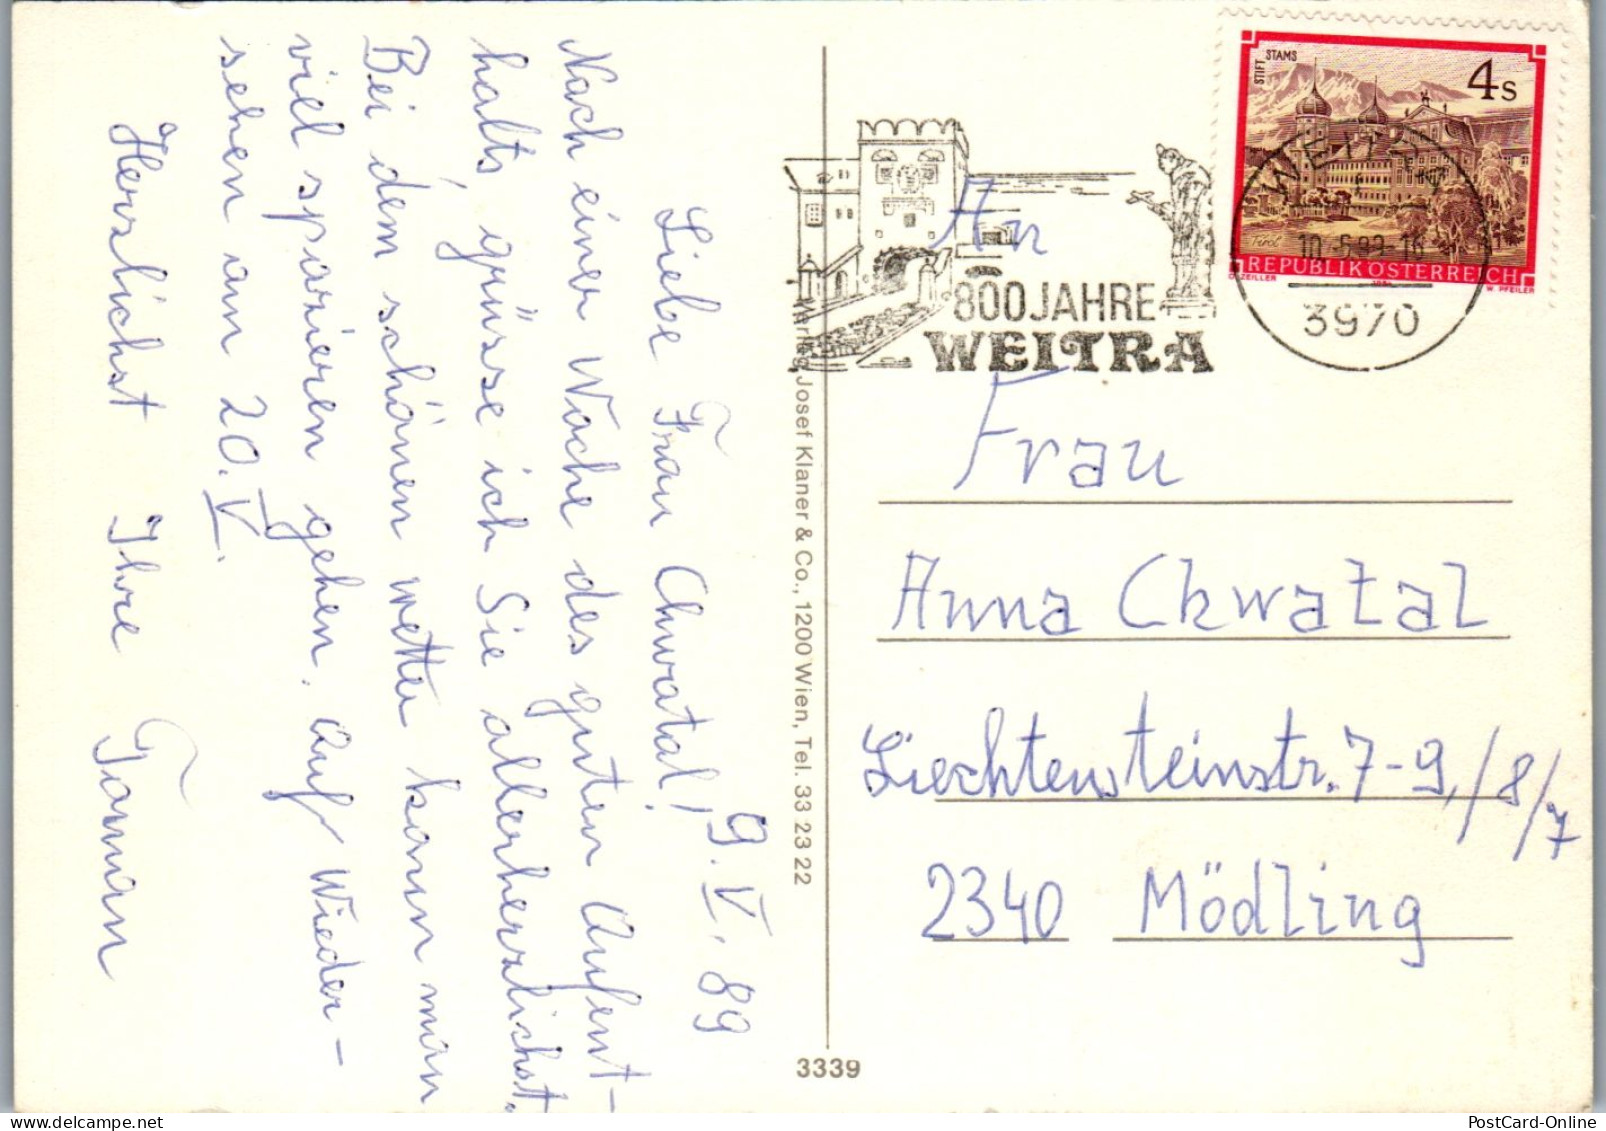 9. V. 89
Liebe Frau Chwatal!
Nach einer Woche des guten Aufent-
halts, grüsse ich Sie allerherzlichst.
Bei dem schönen Wetter kann man
viel spazieren gehen. Auf Wieder-
sehen am 20. V.
Herzlichst Ihre Toman
Verlag Josef Klaner & Co., 1200 Wien, Tel. 33 23 22
3339
800 JAHRE
WEITRA
WEITRA
10.-5.89-16
3970
STIFT STAMS
4 S
Tirol
REPUBLIK ÖSTERREICH
O. ZEILLER 1984 W. PFEILER
An
Frau
Anna Chwatal
Liechtensteinstr. 7-9,/8/7
2340 Mödling
PostCard-Online